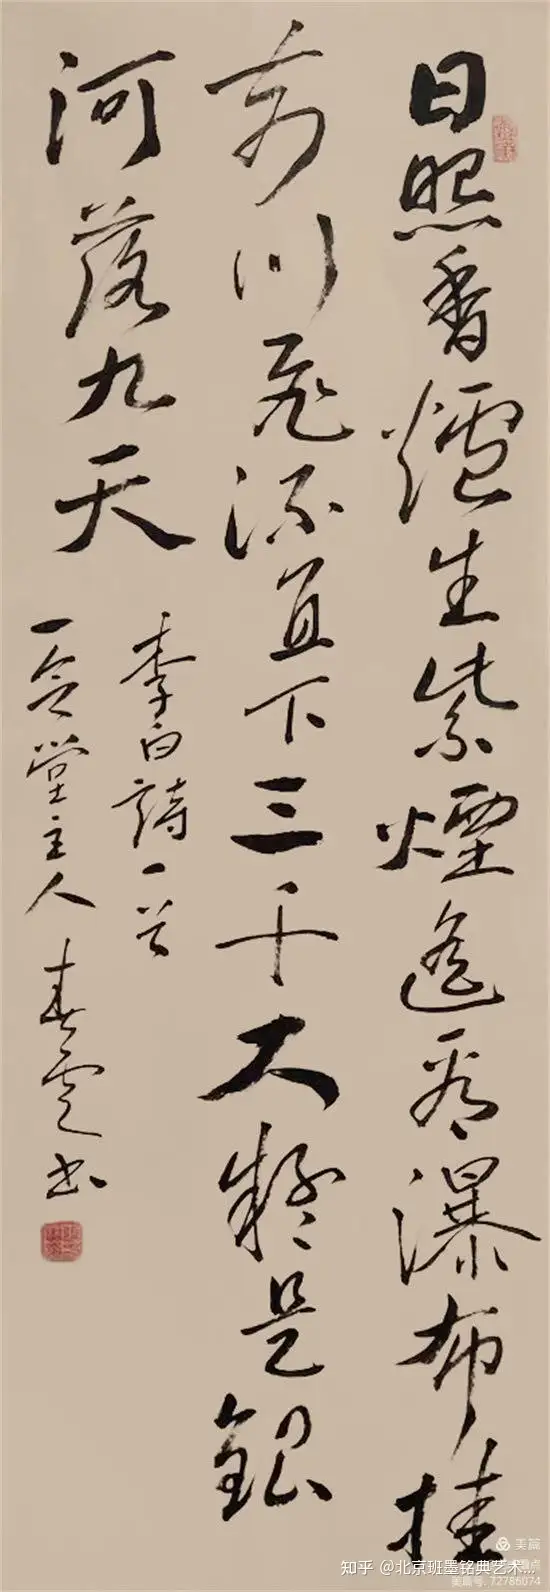 日照香爐生紫煙遙看瀑布掛
前川飛流直下三千尺疑是銀
河落九天
李白詩一首
一念堂主人春雲书
美篇
美篇号:72786074
知乎 @北京班墨铭典艺术...